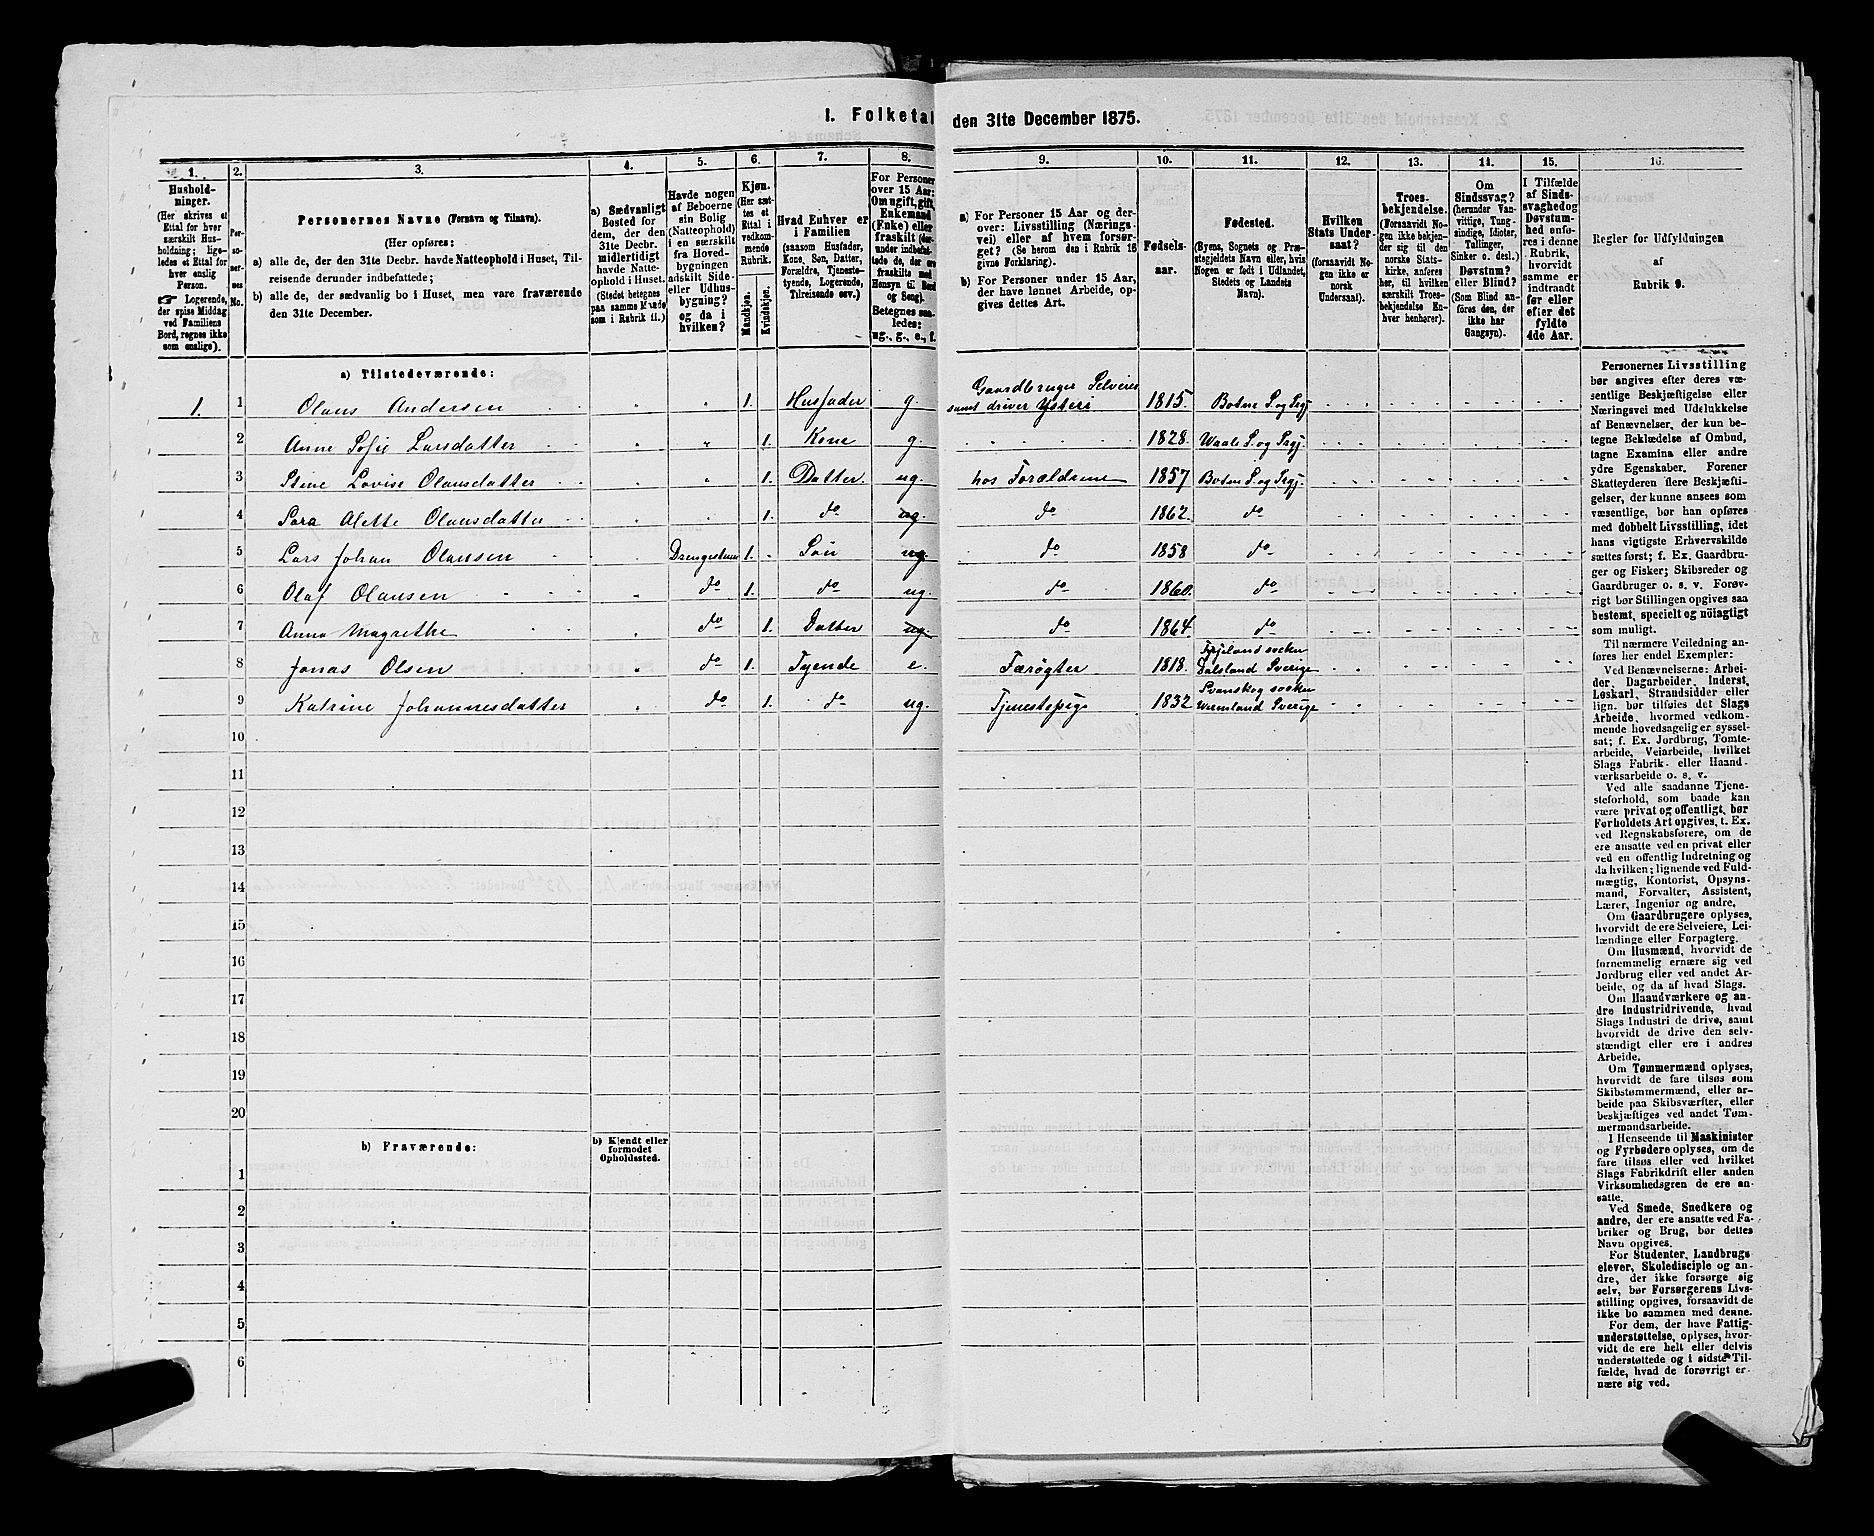 I. Folketal den 31te December 1875.
1.
Husholdninger.
(Her skrives et
Ettal for hver
særskilt Husholdning; ligeledes et Ettal for
hver enslig
Person.
☛ Logerende,
der spise Middag
ved Familiens
Bord, regnes ikke
som enslige).
2.
Personernes No.
3.
Personernes Navne (Fornavn og Tilnavn).
(Her opføres:
a) alle de, der den 31te Decbr. havde Natteophold i Huset, Tilreisende derunder indbefattede;
b) alle de, der sædvanlig bo i Huset, men vare fraværende
den 31te December.
4.
a) Sædvanligt
Bosted for
dem, der den
31te Decbr.
midlertidigt
havde Natteophold i Huset.
(Stedet betegnes
paa samme Maade
som i Rubrik 11.)
5.
Havde nogen
af Beboerne
sin Bolig
(Natteophold)
i en særskilt
fra Hovedbygningen
adskilt Side-
eller Udhusbygning?
og da i
hvilken?
6.
Kjøn.
(Her sættes et
Ettal i
vedkommende
Rubrik.
Mandkjøn.
Kvindekjøn.
7.
Hvad Enhver er
i Familien
(saasom Husfader,
Kone, Søn, Datter,
Forældre, Tjenestetyende, Logerende,
Tilreisende osv.)
8.
For Personer
over 15 Aar:
Om ugift, gift,
Enkemand
(Enke) eller
fraskilt
Betegnes saaledes:
ug., g., e., f.
9.
a) For Personer 15 Aar og derover: Livsstilling (Næringsvei) eller af hvem forsørget? (Se herom den i Rubrik 16
givne Forklaring).
b) For Personer under 15 Aar,
der have lønnet Arbeide, opgives dettes Art.
10.
Fødselsaar.
11.
Fødested.
(Byens, Sognets og Præstegjeldets Navn eller, hvis
Nogen er født i Udlandet,
Stedets og Landets
Navn).
12.
Hvilken
Stats Undersaat?
(forsaavidt Nogen ikke er
norsk
Undersaat).
13.
Troesbekjendelse.
(Forsaavidt Nogen ikke bekjender sig til den
norske Statskirke, anføres
her, til hvilken
særskilt Troesbekjendelse Enhver henhører).
14.
Om
Sindssvag?
(herunder Vanvittige, Tungsindige, Idioter,
Tullinger,
Sinker o. desl.)
Døvstum?
eller Blind?
(Som Blind anføres den, der
ikke har
Gangsyn).
15.
I Tilfælde
af Sindssvaghed og
Døvstumhed anføres i denne
Rubrik,
hvorvidt
samme er
indtraadt
før eller
efter det
fyldte
4de Aar.
16.
Regler for Udfyldningen
af
Rubrik 9.
a) Tilstedeværende:
1. 1 Olaus Andersen 1. Husfader g. Gaardbruger Selveier samt driver Ysteri 1815. Botne S. og Prgj
2 Anne Sofie Larsdatter 1. Kone g. 1828. Waale S. og Prgj.
3 Stine Lovise Olausdatter 1. Datter ug. hos Forældrene 1857 Botne S. og Prgj.
4 Sara Alette Olausdatter 1. do ug. do 1862. do
5 Lars Johan Olausen Drengestuen 1. Søn ug. do 1858 do
6 Olaf Olausen do 1. do ug. do 1860. do
7 Anna Magrethe do 1. Datter ug. do 1864. do
8 Jonas Olsen do 1. Tyende e. Færøgter 1818. socken Dalsland Sverige
9 Katrine Johannesdatter do 1. do ug. Tjenestepige 1832 Svanskog socken Wermland Sverige
10
11
12
13
14
15
16
17
18
19
20
b) Fraværende:
b) Kjendt eller
formodet
Opholdssted.
1
2
3
4
5
6
Personernes Livsstilling
bør angives efter deres væsentlige Beskjæftigelse eller
Næringsvei med Udelukkelse
af Benævnelser, der kun betegne Beklædelse af Ombud,
tagne Examina eller andre
ydre Egenskaber. Forener
Skatteyderen flere Beskjæftigelser, der kunne ansees som
væsentlige, bør han opføres
med dobbelt Livsstilling, idet
hans vigtigste Erhvervskilde
sættes først; f. Ex. Gaardbruger og Fisker; Skibsreder og
Gaardbruger o. s. v. Forøvrigt bør Stillingen opgives saa
bestemt, specielt og nøiagtigt
som muligt.
Til nærmere Veiledning anføres her endel Exempler:
Ved Benævnelserne: Arbeider, Dagarbeider, Inderst,
Løskarl, Strandsidder eller
lign. bør tilføies det Slags
Arbeide, hvormed vedkommende hovedsagelig er sysselsat; f. Ex. Jordbrug, Tomtearbeide, Veiarbeide, hvilket
Slags Fabrik- eller Haandværksarbeide o. s. v.
Ved alle saadanne Tjenesteforhold, som baade kan
være privat og offentligt, bør
Forholdets Art opgives, t. Ex.
ved Regnskabsførere, om de
ere ansatte ved en privat eller
ved en offentlig Indretning og
da hvilken; lignende ved Fuldmægtig, Kontorist, Opsynsmand, Forvalter, Assistent,
Lærer, Ingeniør og andre.
Om Gaardbrugere oplyses,
hvorvidt de ere Selveiere, Leilændinge eller Forpagtere.
Om Husmænd, hvorvidt de
fornemmelig ernære sig ved
Jordbrug eller ved andet Arbeide, og da af hvad Slags.
Om Haandværkere og andre Industridrivende, hvad
Slags Industri de drive, samt
hvorvidt de drive den selvstændigt eller ere i andres
Arbeide.
Om Tømmermænd oplyses,
hvorvidt de fare tilsøs som
Skibstømmermænd, eller arbeide paa Skibsværfter, eller
beskjæftiges ved andet Tømmermandsarbeide.
I Henseende til Maskinister
og Fyrbødere oplyses, om de
fare tilsøs eller ved hvilket
Slags Fabrikdrift eller anden
Virksomhedsgren de ere ansatte.
Ved Smede, Snedkere og
andre, der ere ansatte ved Fabriker og Brug, bør dettes
Navn opgives.
For Studenter, Landbrugselever, Skoledisciple og andre, der ikke forsørge sig
selv, bør Forsørgerens Livsstilling opgives, forsaavidt de
ikke bo sammen med denne.
For dem, der have Fattigunderstøttelse, oplyses, hvorvidt de ere helt eller delvis
understøttede og i sidste Tilfælde, hvad de forøvrigt ernære sig ved.